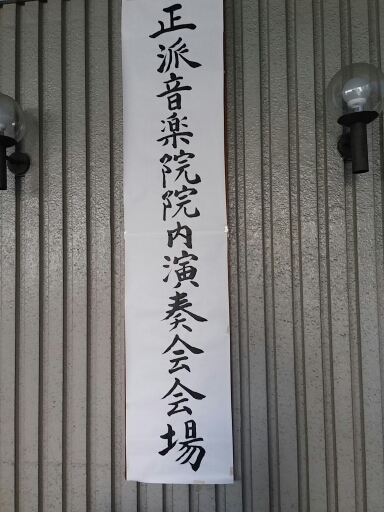 正派音楽院院内演奏会会場